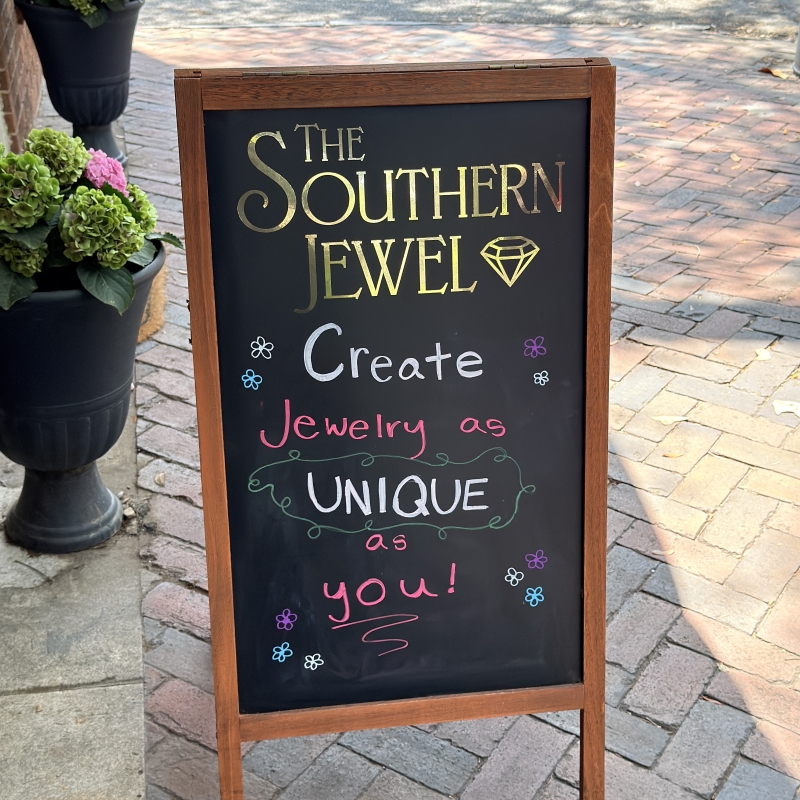 THE
SOUTHERN
JEWEL
Create
Jewelry as
UNIQUE
as
you!